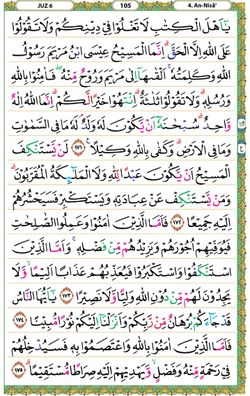 JUZ 6 105 4. An-Nisā'
يَٰٓأَهْلَ الْكِتَٰبِ لَا تَغْلُوْا فِيْ دِيْنِكُمْ وَلَا تَقُوْلُوْا
عَلَى اللّٰهِ اِلَّا الْحَقَّ ۗ اِنَّمَا الْمَسِيْحُ عِيْسَى ابْنُ مَرْيَمَ رَسُوْلُ
اللّٰهِ وَكَلِمَتُهٗ ۚ اَلْقٰىهَآ اِلٰى مَرْيَمَ وَرُوْحٌ مِّنْهُ ۖ فَاٰمِنُوْا بِاللّٰهِ
وَرُسُلِهٖ ۗ وَلَا تَقُوْلُوْا ثَلٰثَةٌ ۗ اِنْتَهُوْا خَيْرًا لَّكُمْ ۗ اِنَّمَا اللّٰهُ اِلٰهٌ
وَّاحِدٌ ۗ سُبْحٰنَهٗٓ اَنْ يَّكُوْنَ لَهٗ وَلَدٌ ۘ لَهٗ مَا فِى السَّمٰوٰتِ
وَمَا فِى الْاَرْضِ ۗ وَكَفٰى بِاللّٰهِ وَكِيْلًا ۝١٧١ لَنْ يَّسْتَنْكِفَ
الْمَسِيْحُ اَنْ يَّكُوْنَ عَبْدًا لِّلّٰهِ وَلَا الْمَلٰۤىِٕكَةُ الْمُقَرَّبُوْنَ ۗ
وَمَنْ يَّسْتَنْكِفْ عَنْ عِبَادَتِهٖ وَيَسْتَكْبِرْ فَسَيَحْشُرُهُمْ
اِلَيْهِ جَمِيْعًا ۝١٧٢ فَاَمَّا الَّذِيْنَ اٰمَنُوْا وَعَمِلُوا الصّٰلِحٰتِ
فَيُوَفِّيْهِمْ اُجُوْرَهُمْ وَيَزِيْدُهُمْ مِّنْ فَضْلِهٖ ۚ وَاَمَّا الَّذِيْنَ
اسْتَنْكَفُوْا وَاسْتَكْبَرُوْا فَيُعَذِّبُهُمْ عَذَابًا اَلِيْمًا ۙ وَّلَا
يَجِدُوْنَ لَهُمْ مِّنْ دُوْنِ اللّٰهِ وَلِيًّا وَّلَا نَصِيْرًا ۝١٧٣ يٰٓاَيُّهَا النَّاسُ
قَدْ جَاۤءَكُمْ بُرْهَانٌ مِّنْ رَّبِّكُمْ وَاَنْزَلْنَآ اِلَيْكُمْ نُوْرًا مُّبِيْنًا ۝١٧٤
فَاَمَّا الَّذِيْنَ اٰمَنُوْا بِاللّٰهِ وَاعْتَصَمُوْا بِهٖ فَسَيُدْخِلُهُمْ
فِيْ رَحْمَةٍ مِّنْهُ وَفَضْلٍ ۙ وَّيَهْدِيْهِمْ اِلَيْهِ صِرَاطًا مُّسْتَقِيْمًا ۝١٧٥